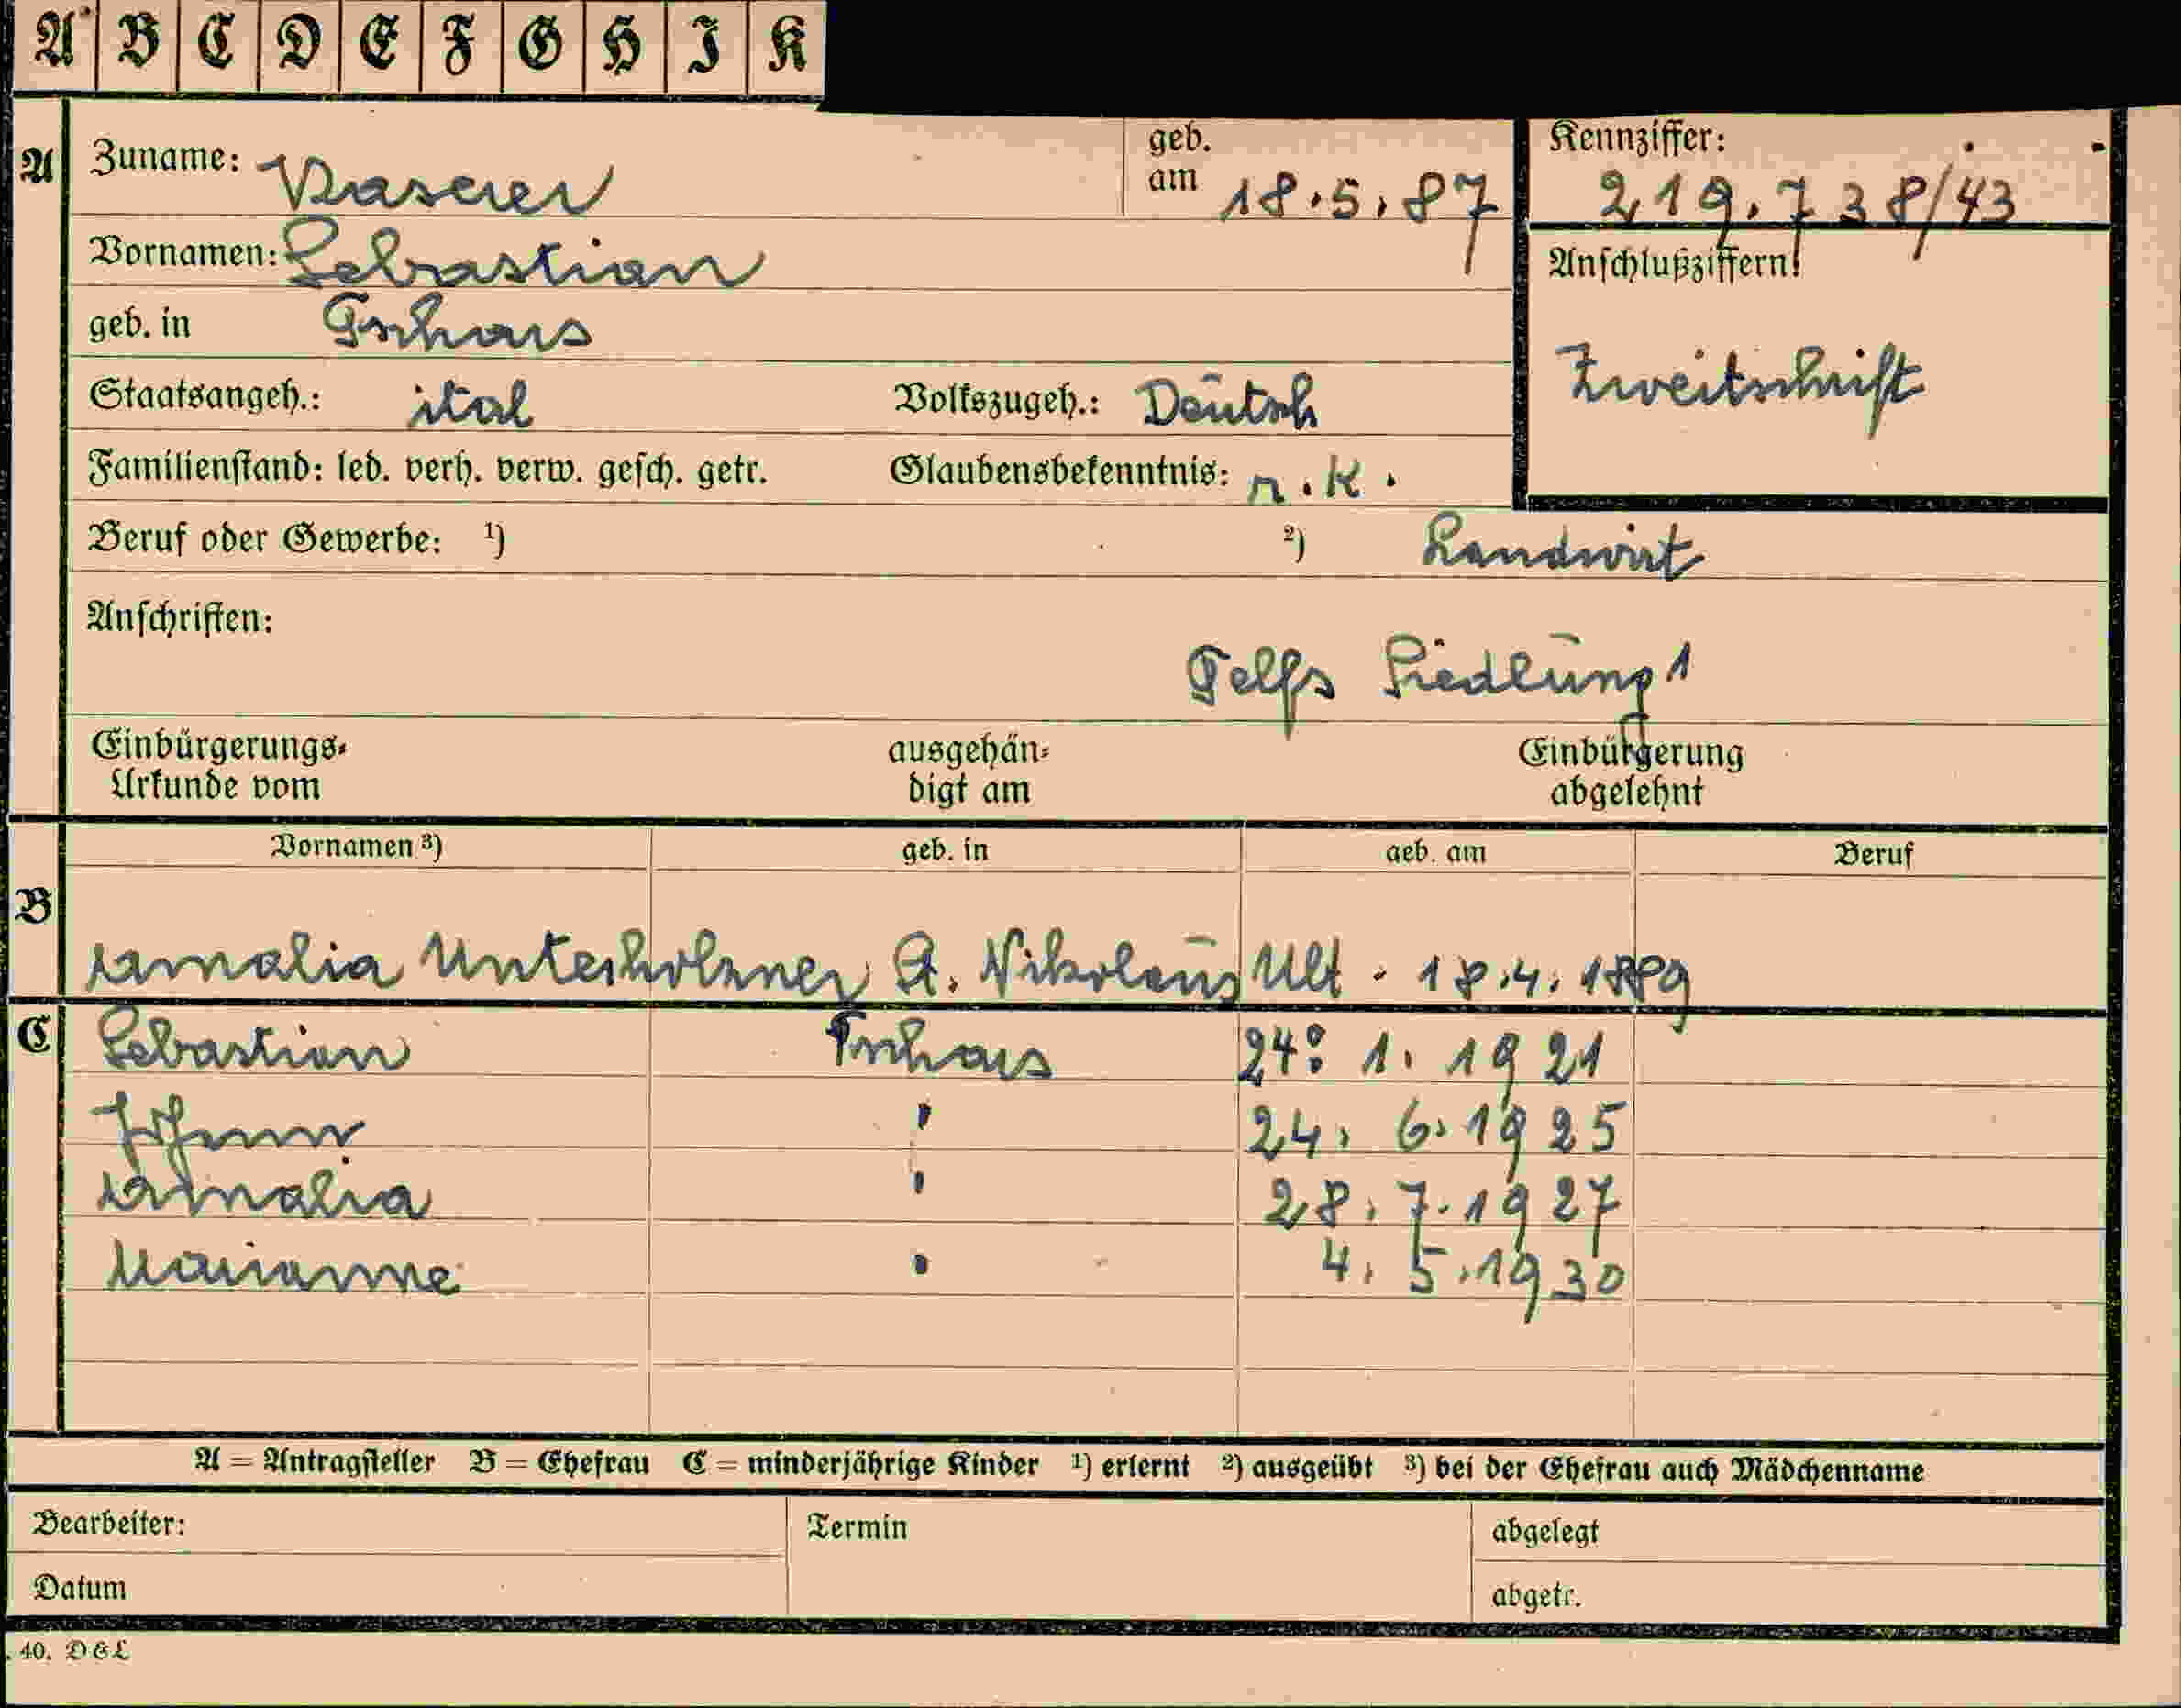 A B C D E F G H I K
A Zuname: Vraserer geb. am 18.5.87 Kennziffer: 219.738/43
Vornamen: Sebastian Anschlußziffern:
geb. in Tschars Zweitschrift
Staatsangeh.: ital Volkszugeh.: Deutsch
Familienstand: led. verh. verw. gesch. getr. Glaubensbekenntnis: r.k.
Beruf oder Gewerbe: 1) 2) Landwirt
Anschriften:
Telfs Siedlung 1
Einbürgerungs- ausgehän- Einbürgerung
Urkunde vom digt am abgelehnt
Vornamen 3) geb. in geb. am Beruf
B Amalia Unterholzner St. Nikolaus Ult. 18.4.1889
C Sebastian Tschars 24. 1. 1921
Johann " 24. 6. 1925
Amalia " 28. 7. 1927
Marianne " 4. 5. 1930
A = Antragsteller B = Ehefrau C = minderjährige Kinder 1) erlernt 2) ausgeübt 3) bei der Ehefrau auch Mädchenname
Bearbeiter: Termin abgelegt
Datum abgetr.
. 40. D&L